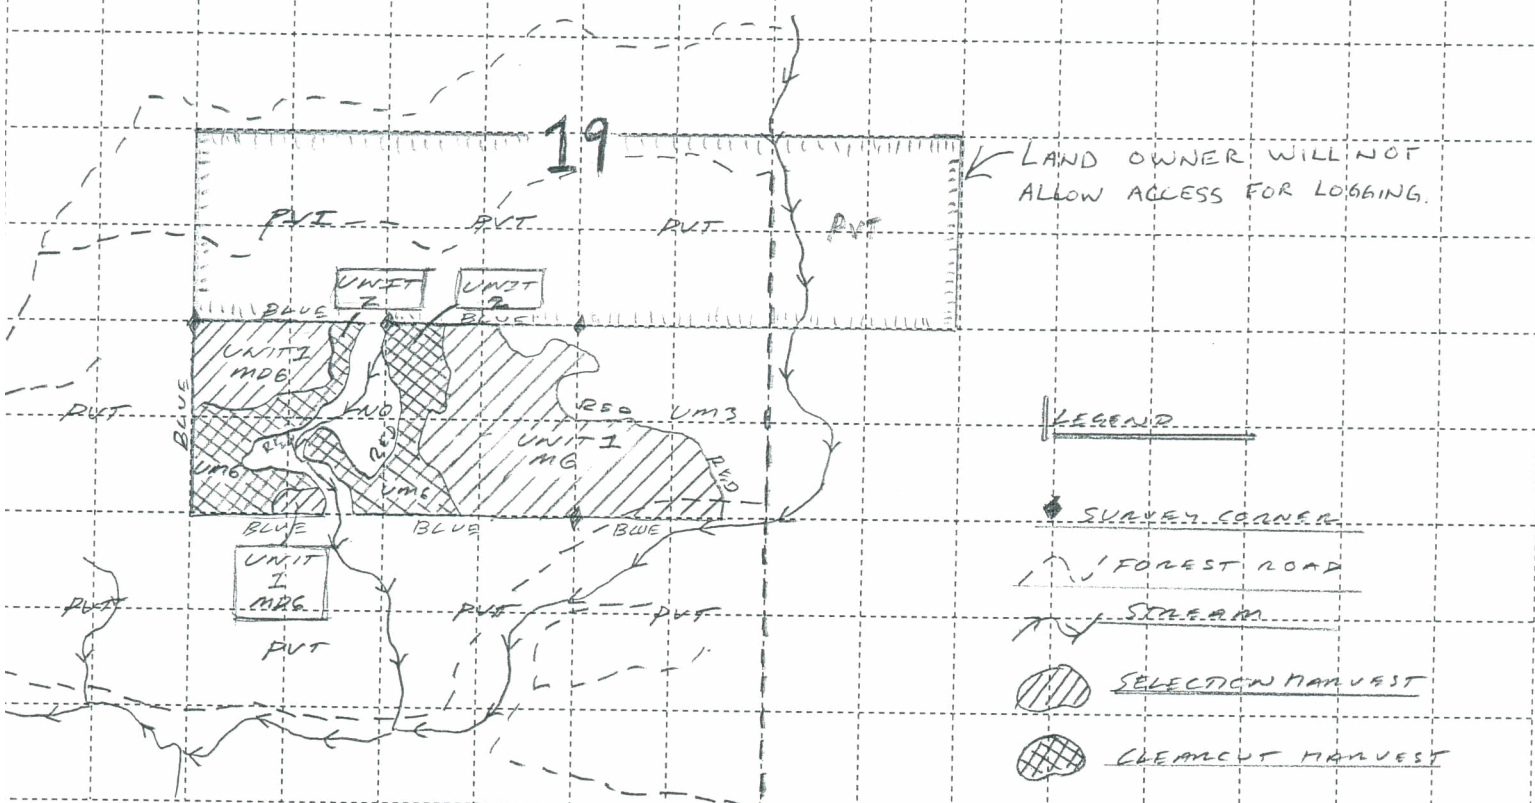 19
LAND OWNER WILL NOT
ALLOW ACCESS FOR LOGGING.
PVT
PVT
PVT
PVT
UNIT
2
UNIT
2
BLUE
BLUE
UNIT 1
MD6
BLUE
PVT
NO
RED
RED
RED
UM3
UNIT 1
M6
RED
UM6
UM6
BLUE
BLUE
BLUE
UNIT
1
MD6
PVT
PVT
PVT
PVT
LEGEND
SURVEY CORNER
FOREST ROAD
STREAM
SELECTION HARVEST
CLEARCUT HARVEST